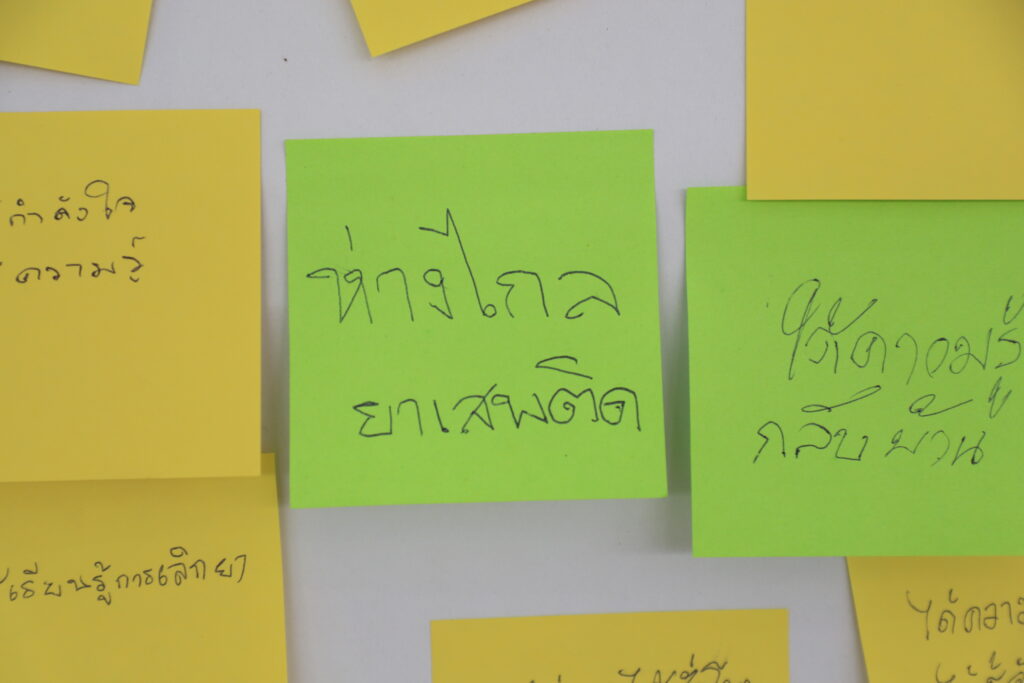 กำลังใจ
ความรู้
ห่างไกล
ยาเสพติด
ได้ความรู้
กลับบ้าน
เรียนรู้การเลิกยา
ได้ความ